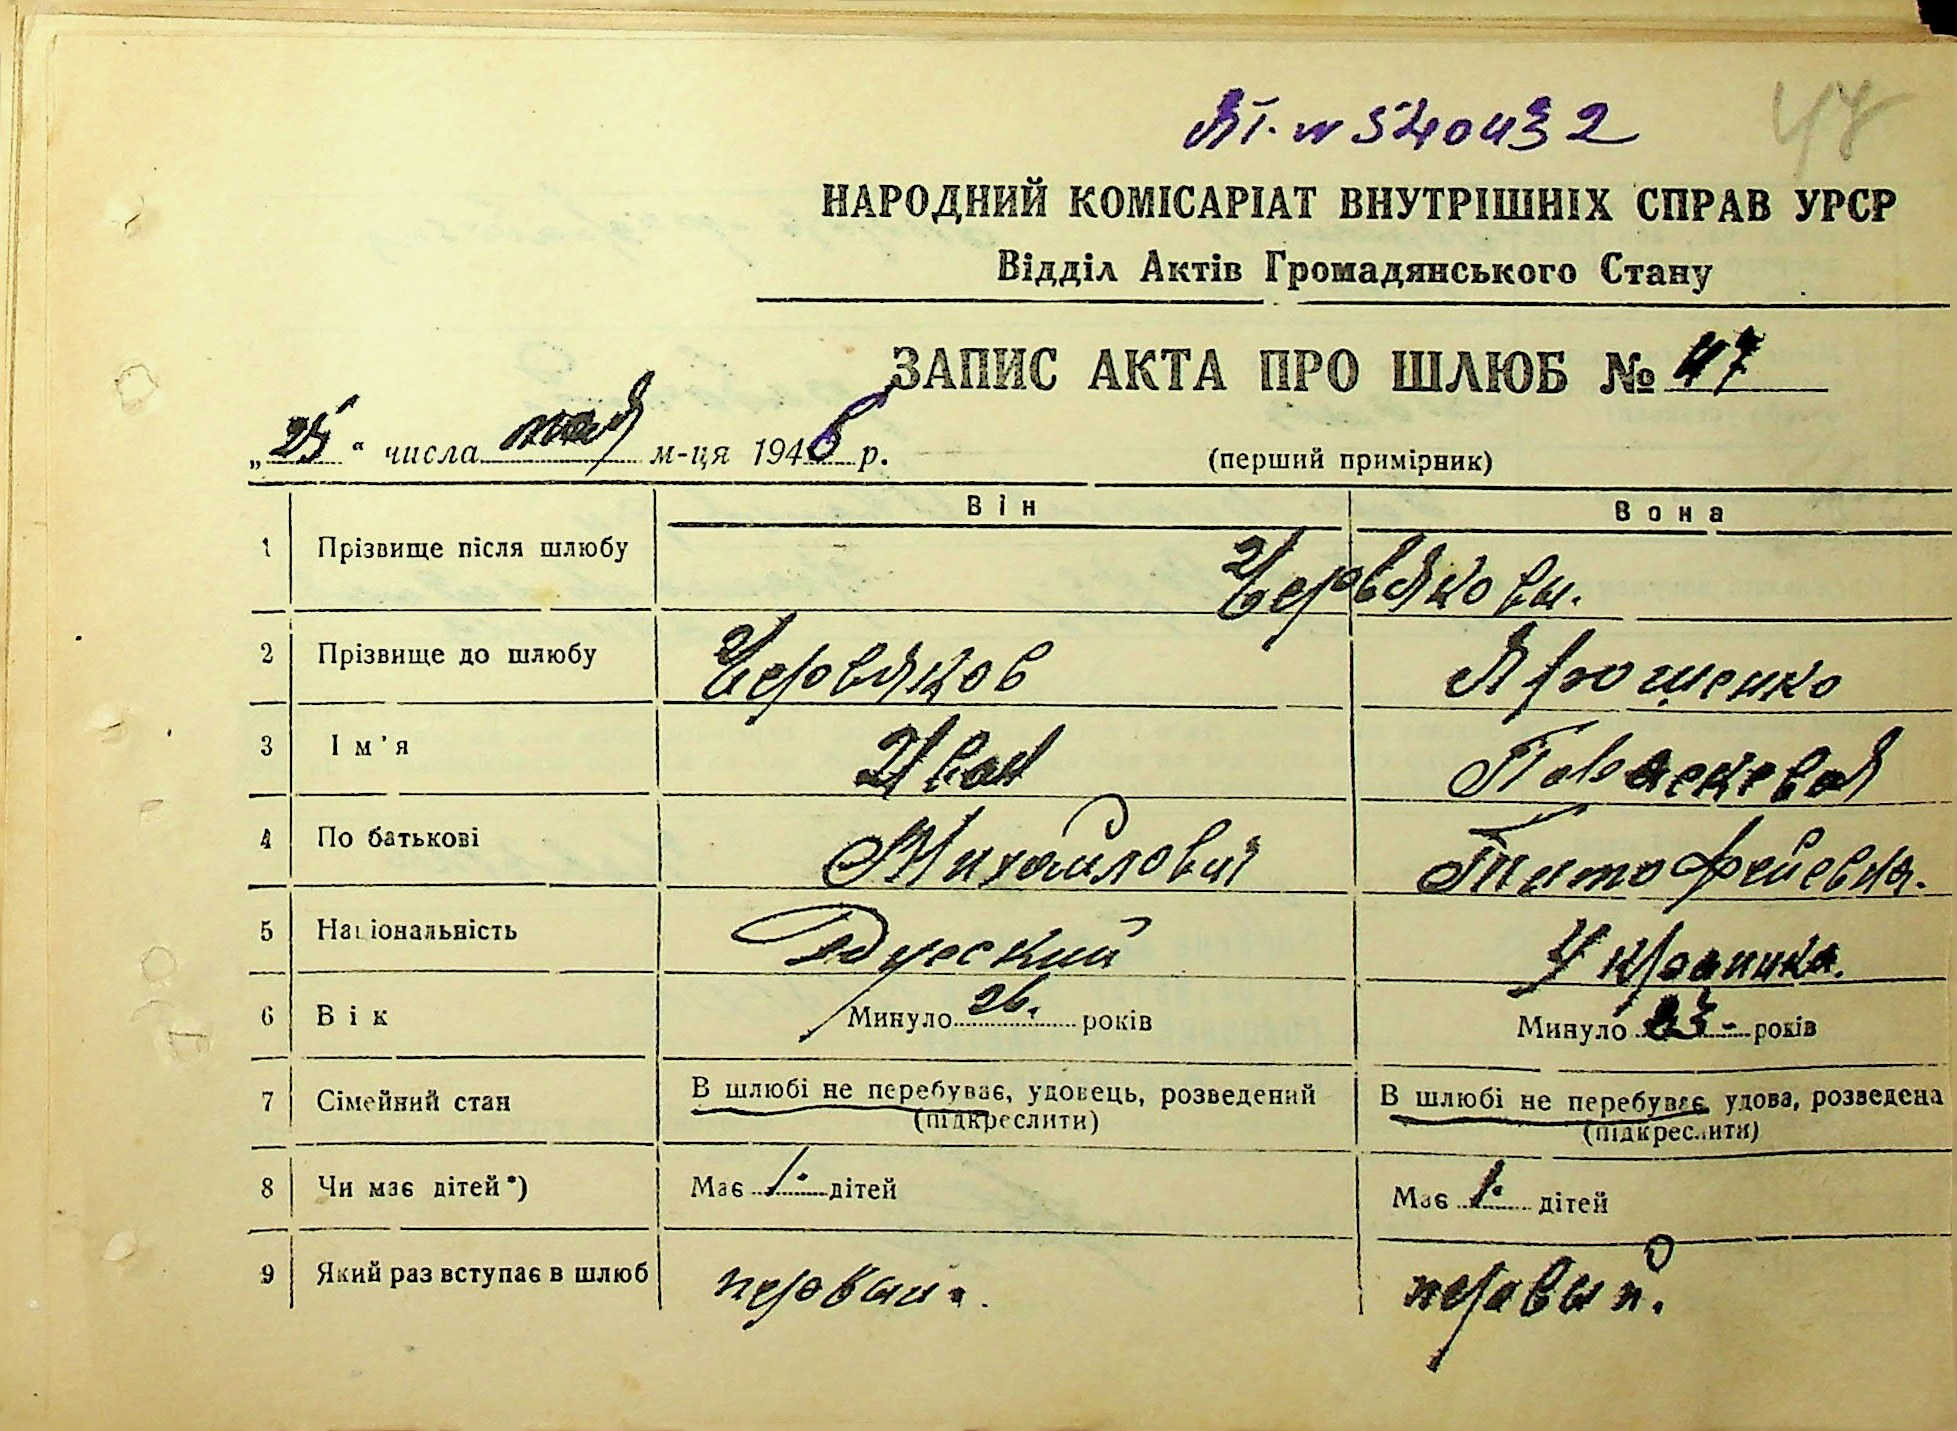 ЯІ. № 540432
47
НАРОДНИЙ КОМІСАРІАТ ВНУТРІШНІХ СПРАВ УРСР
Відділ Актів Громадянського Стану
ЗАПИС АКТА ПРО ШЛЮБ № 47
„25“ числа мая м-ця 1946 р.
(перший примірник)
Він Вона
1 Прізвище після шлюбу Червяковы.
2 Прізвище до шлюбу Червяков Ярошенко
3 Ім'я Иван Параскевая
4 По батькові Михайлович Тимофеевна.
5 Національність Русский Украинка.
6 Вік Минуло 26. років Минуло 23. років
7 Сімейний стан В шлюбі не перебуває, удовець, розведений В шлюбі не перебуває, удова, розведена
(підкреслити) (підкреслити)
8 Чи має дітей*) Має 1. дітей Має 1. дітей
9 Який раз вступає в шлюб первый. первый.